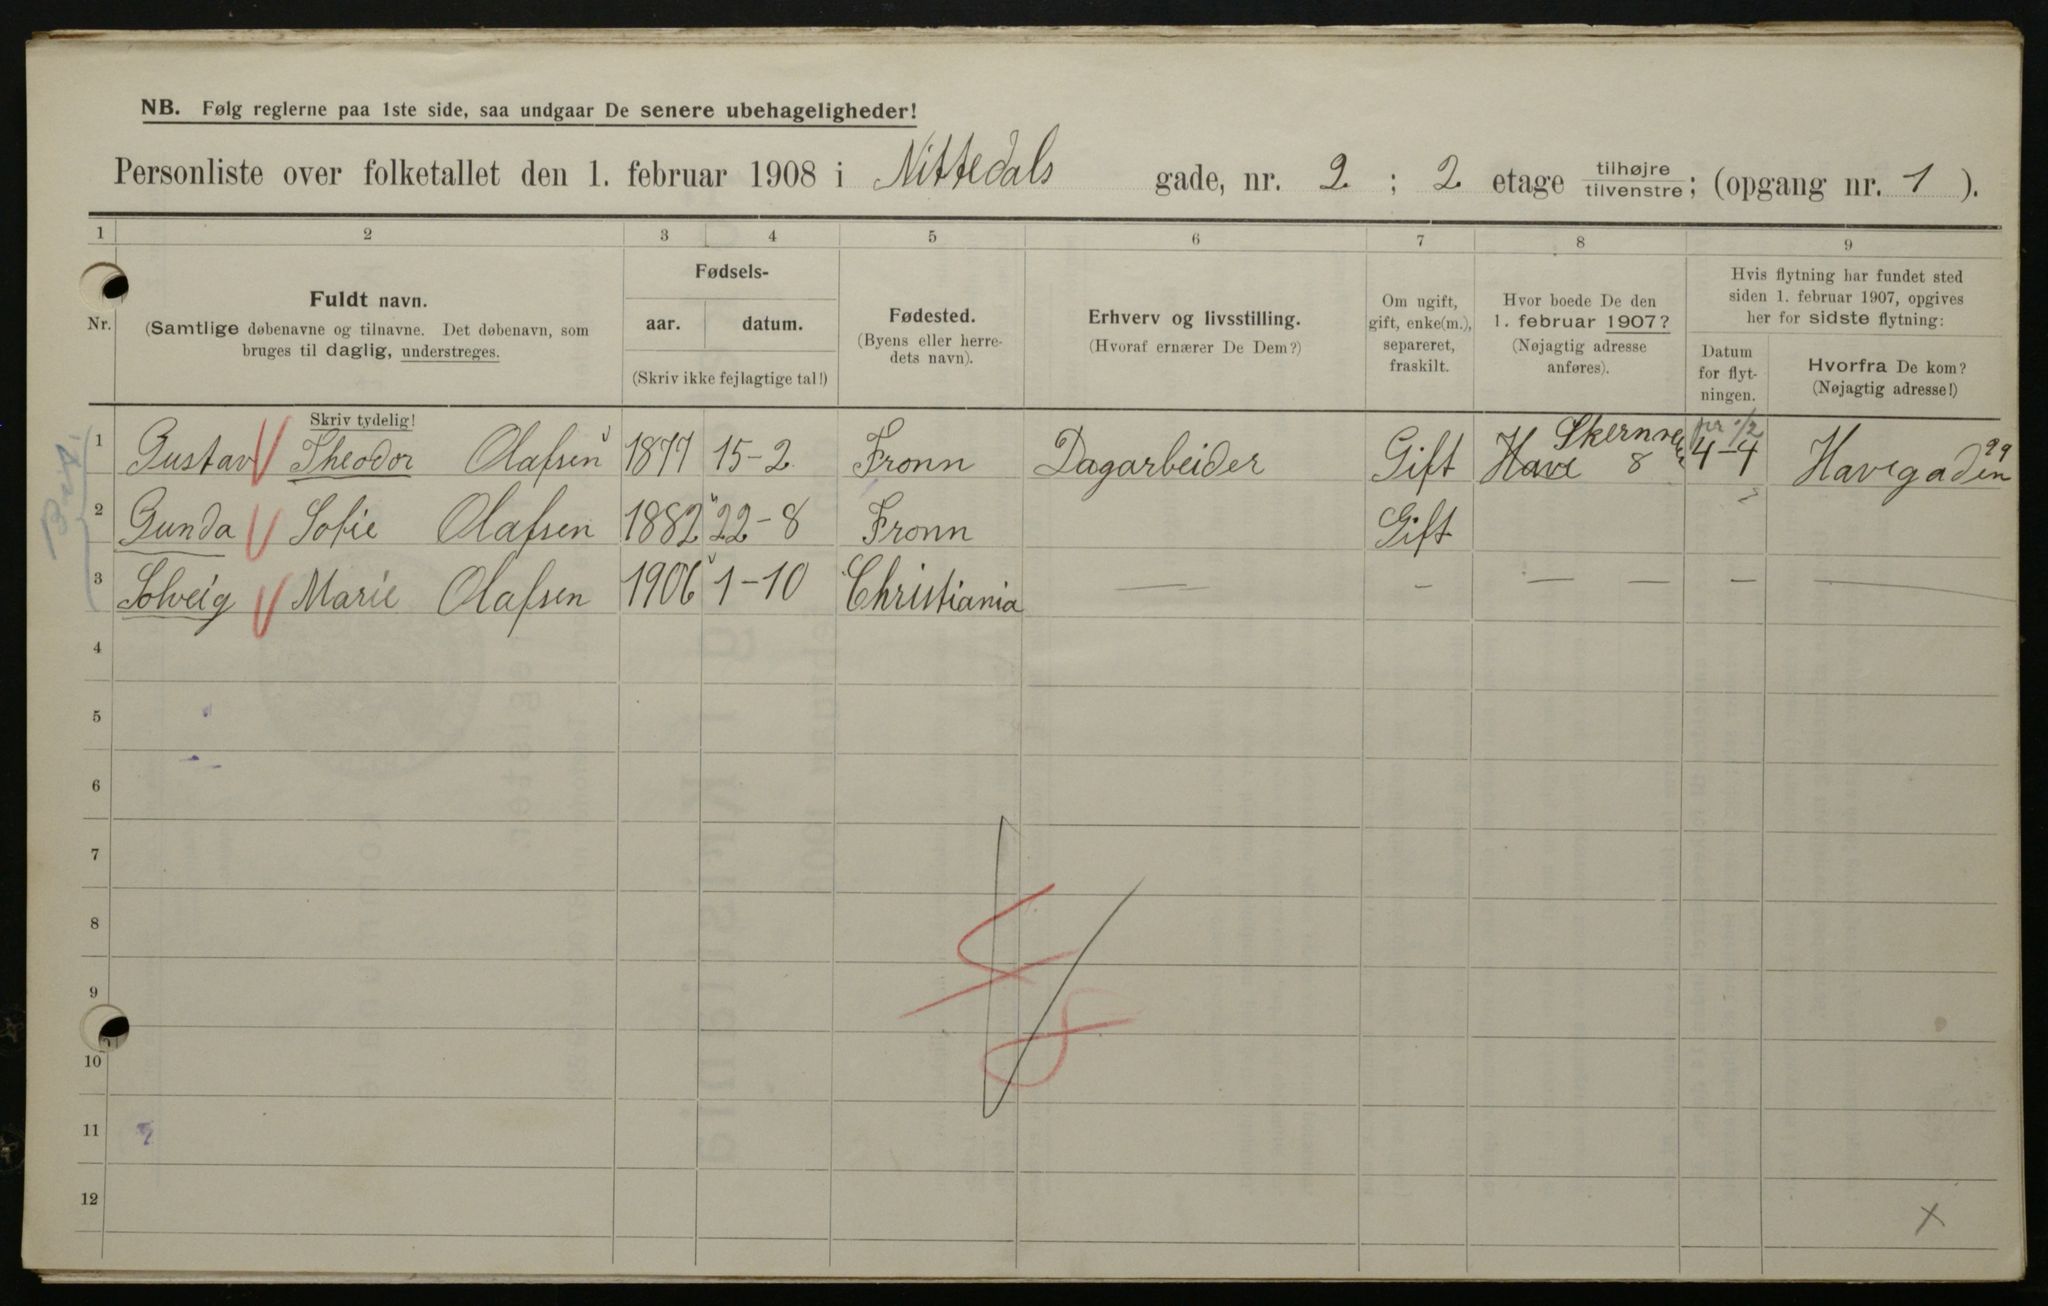 NB. Følg reglerne paa 1ste side, saa undgaar De senere ubehageligheder!
Personliste over folketallet den 1. februar 1908 i Nittedals gade, nr. 2 ; 2 etage tilhøjre tilvenstre ; (opgang nr. 1 ).
1 2 3 4 5 6 7 8 9
Nr.
Fuldt navn.
(Samtlige døbenavne og tilnavne. Det døbenavn, som
bruges til daglig, understreges.
Skriv tydelig!
Fødsels-
aar. datum.
(Skriv ikke fejlagtige tal!)
Fødested.
(Byens eller herre-
dets navn).
Erhverv og livsstilling.
(Hvoraf ernærer De Dem?)
Om ugift,
gift, enke(m.),
separeret,
fraskilt.
Hvor boede De den
1. februar 1907?
(Nøjagtig adresse
anføres).
Hvis flytning har fundet sted
siden 1. februar 1907, opgives
her for sidste flytning:
Datum
for flyt-
ningen.
Hvorfra De kom?
(Nøjagtig adresse!)
1 Gustav Theodor Olafsen 1877 15-2 Fronn Dagarbeider Gift Have 8 4-4 Havegaden 29
2 Gunda Sofie Olafsen 1882 22-8 Fronn Gift
3 Solveig Marie Olafsen 1906 1-10 Christiania — - — — — —
4
5
6
7
8
9
10
11
12